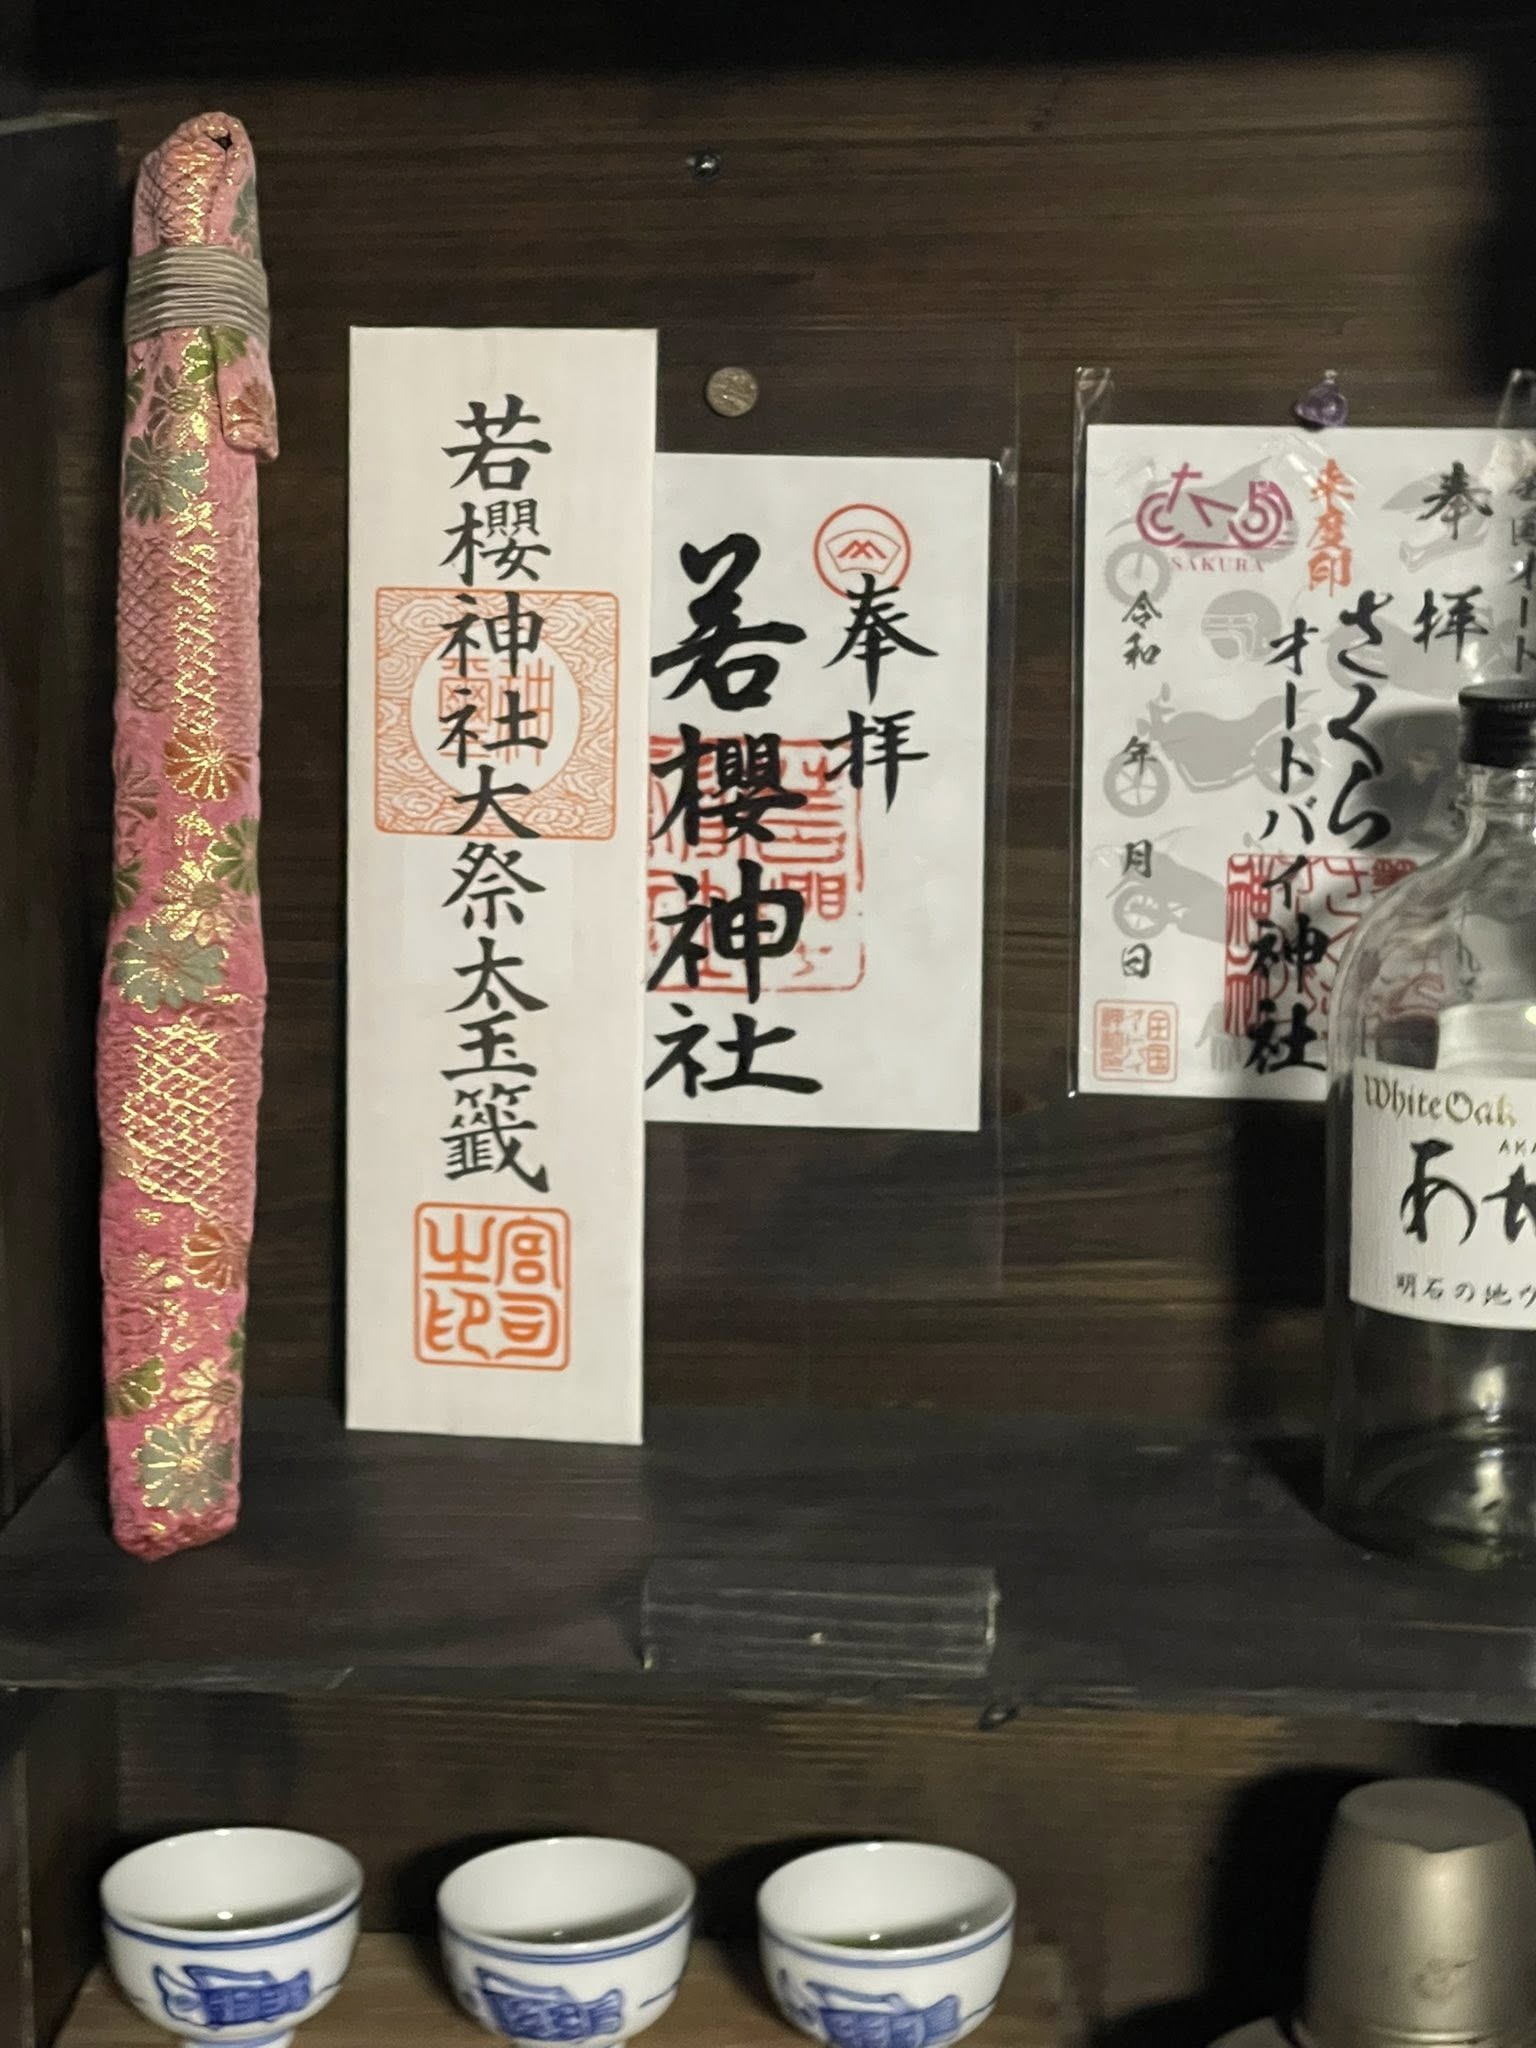 若櫻神社大祭太玉籤
宮司
之印
奉拝
若櫻神社
奉拝
さくら
オートバイ神社
来度印
SAKURA
令和 年 月 日
WhiteOak
あか
明石の地ウ